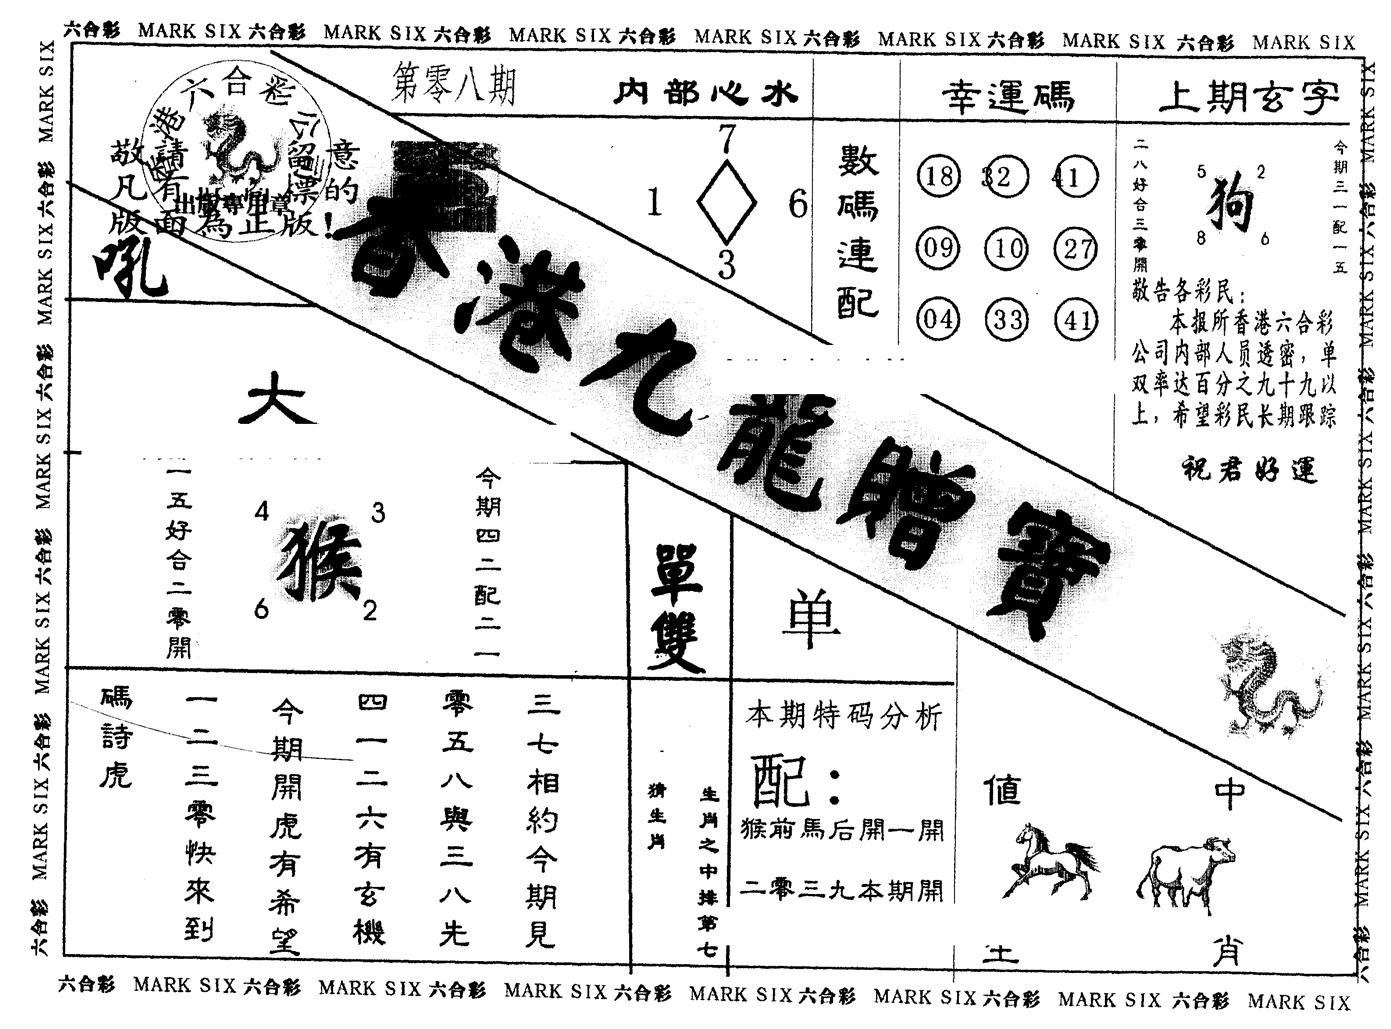 六合彩 MARK SIX 六合彩 MARK SIX 六合彩 MARK SIX 六合彩 MARK SIX 六合彩 MARK SIX 六合彩 MARK SIX 六合彩 MARK SIX
第零八期
内部心水
幸運碼
上期玄字
六合彩公
港
敬請留意
凡有標的
版面為正版!
出版專用章
吼
香港九龍贈寶
7
1
6
3
數碼連配
18 32 41
09 10 27
04 33 41
二八好合三零開
5 2
狗
8 6
今期三一配一五
敬告各彩民:
本报所香港六合彩
公司内部人员透密,单
双率达百分之九十九以
上,希望彩民长期跟踪
祝君好運
大
一五好合二零開
4 3
猴
6 2
今期四二配二一
單雙
单
碼詩虎
一二三零快來到
今期開虎有希望
四一二六有玄機
零五八與三八先
三七相約今期見
猜生肖
生肖之中排第七
本期特码分析
配:
猴前馬后開一開
二零三九本期開
值 中
肖
六合彩 MARK SIX 六合彩 MARK SIX 六合彩 MARK SIX 六合彩 MARK SIX 六合彩 MARK SIX 六合彩 MARK SIX 六合彩 MARK SIX
MARK SIX 六合彩 MARK SIX 六合彩 MARK SIX 六合彩 MARK SIX 六合彩 MARK SIX 六合彩
MARK SIX 六合彩 MARK SIX 六合彩 MARK SIX 六合彩 MARK SIX 六合彩 MARK SIX 六合彩